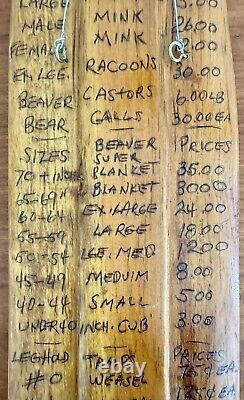 LARGE 5.00
MALE MINK 26.00
FEMALE MINK
EX.LGE. RACOONS 30.00
BEAVER CASTORS 6.00LB
BEAR GALLS 30.00 EA
SIZES BEAVER PRICES
70 + INCH SUPER BLANKET 35.00
65-69 BLANKET 3000
60-64 EX.LARGE 24.00
55-59 LARGE 18.00
50-54 LGE.MED 1200
45-49 MEDUIM 8.00
40-44 SMALL 5.00
UNDER 40 INCH. CUB 3.00
LEGHOLD TRAPS PRICES
#0 WEASEL 75¢ EA
1.25¢ EA.
ebay